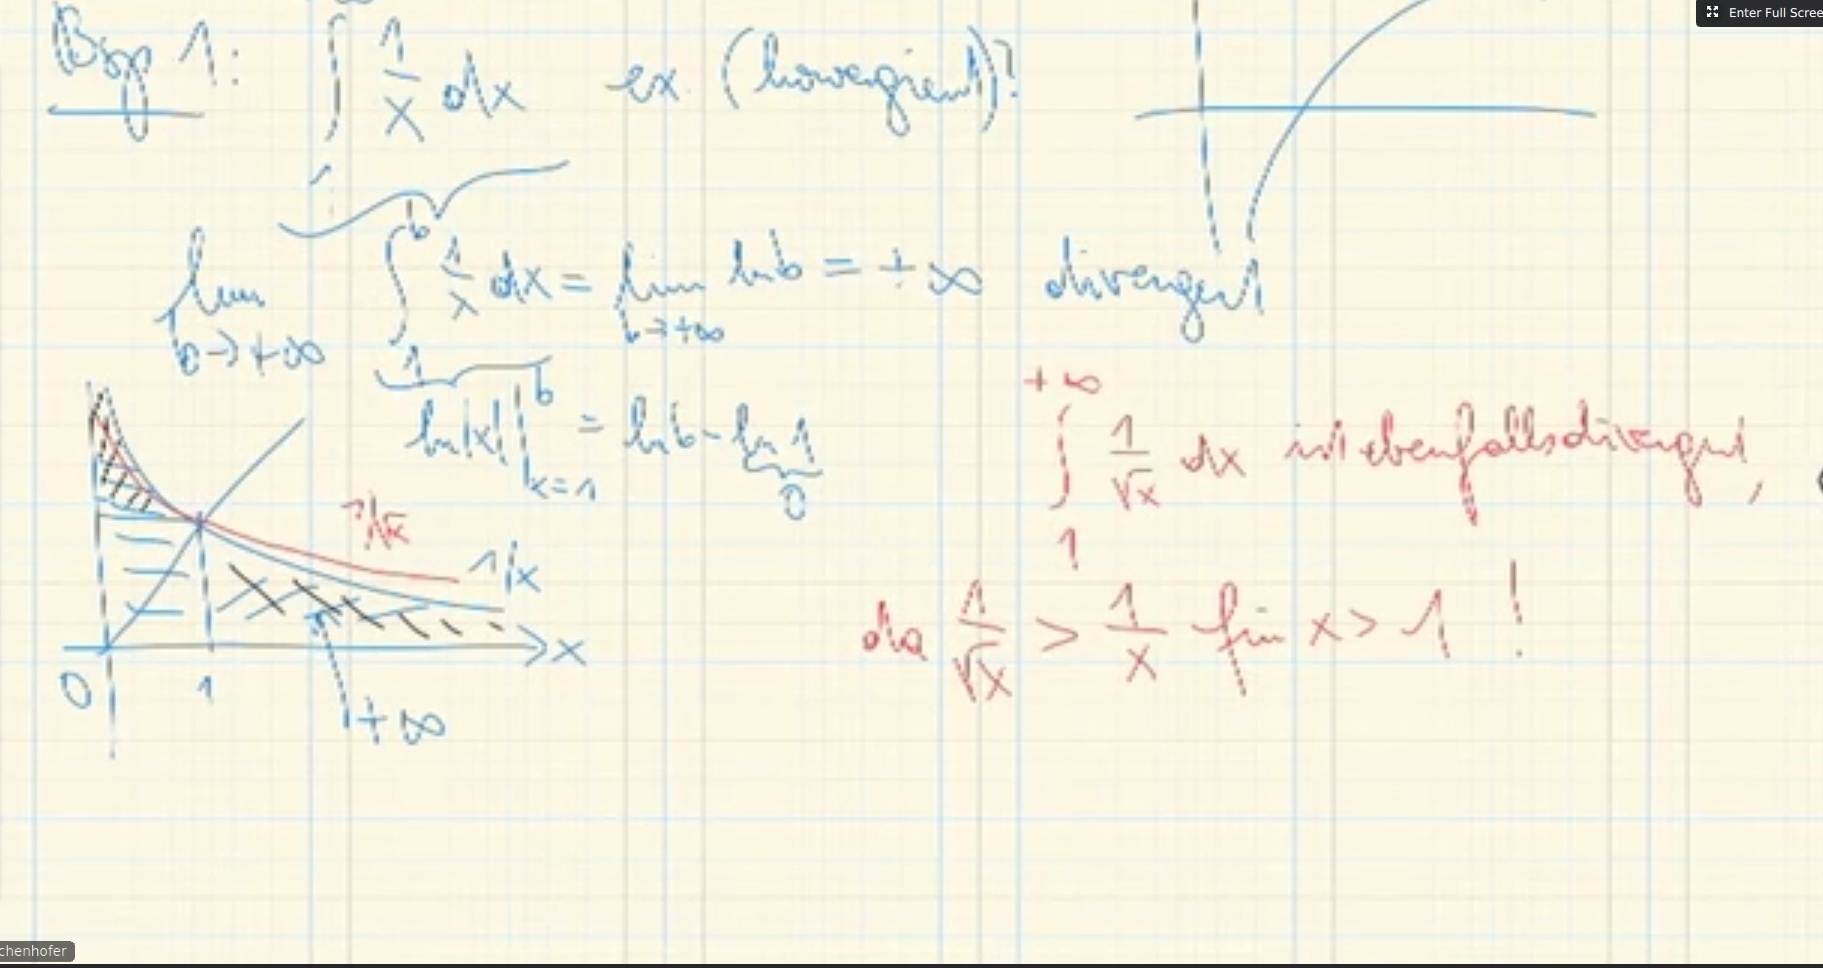 Enter Full Scree
Bsp 1: ∫ 1/x dx ex. (konvergiert)?
1
lim b→+∞ ∫₁ᵇ 1/x dx = lim b→+∞ ln b = +∞ divergent
ln|x| |ᵇ x=1 = ln b - ln 1
0
+∞
∫ 1/√x dx ist ebenfalls divergent,
1
1/√x
1/x
da 1/√x > 1/x für x > 1 !
x
0 1
+∞
chenhofer